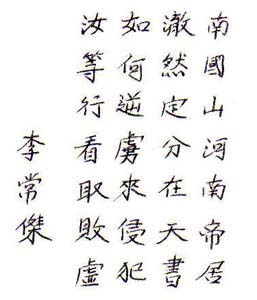 南國山河南帝居
澈然定分在天書
如何逆虜來侵犯
汝等行看取敗虛
李常傑